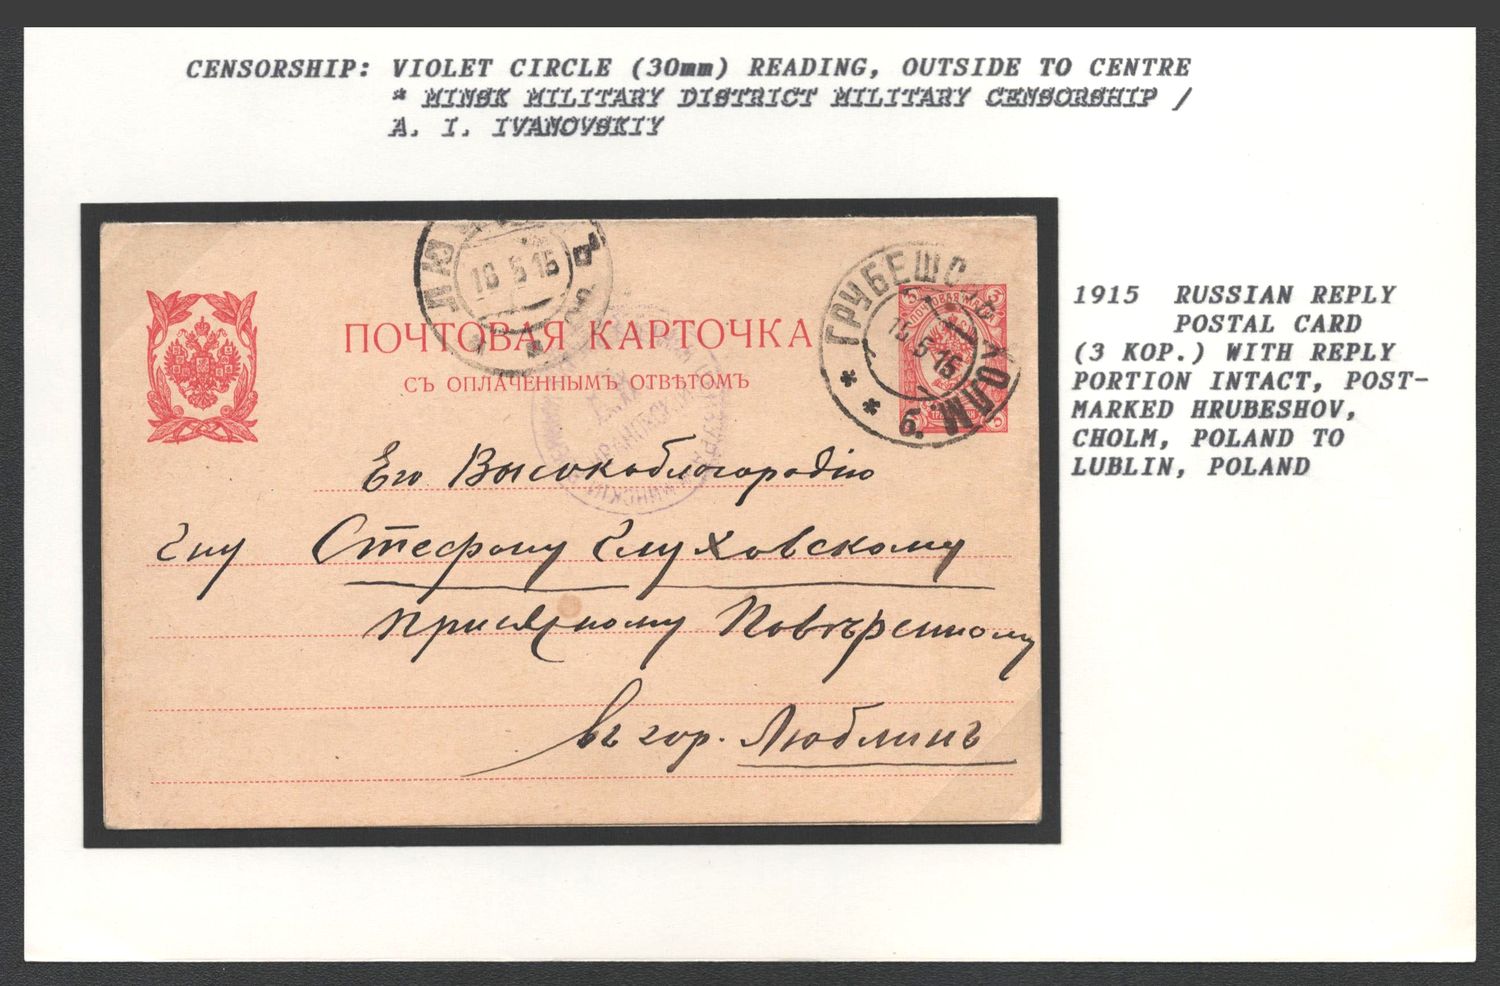 CENSORSHIP: VIOLET CIRCLE (30mm) READING, OUTSIDE TO CENTRE
* MINSK MILITARY DISTRICT MILITARY CENSORSHIP /
A. I. IVANOVSKIY
18 5 15
ГРУБЕШОВ ХОЛМ. б.
15 5 15
ПОЧТОВАЯ КАРТОЧКА
СЪ ОПЛАЧЕННЫМЪ ОТВѢТОМЪ
Его Высокоблагородію
Гну Стефану Глуховскому
Присяжному Повѣренному
въ гор. Люблинъ
1915 RUSSIAN REPLY
POSTAL CARD
(3 KOP.) WITH REPLY
PORTION INTACT, POST-
MARKED HRUBESHOV,
CHOLM, POLAND TO
LUBLIN, POLAND